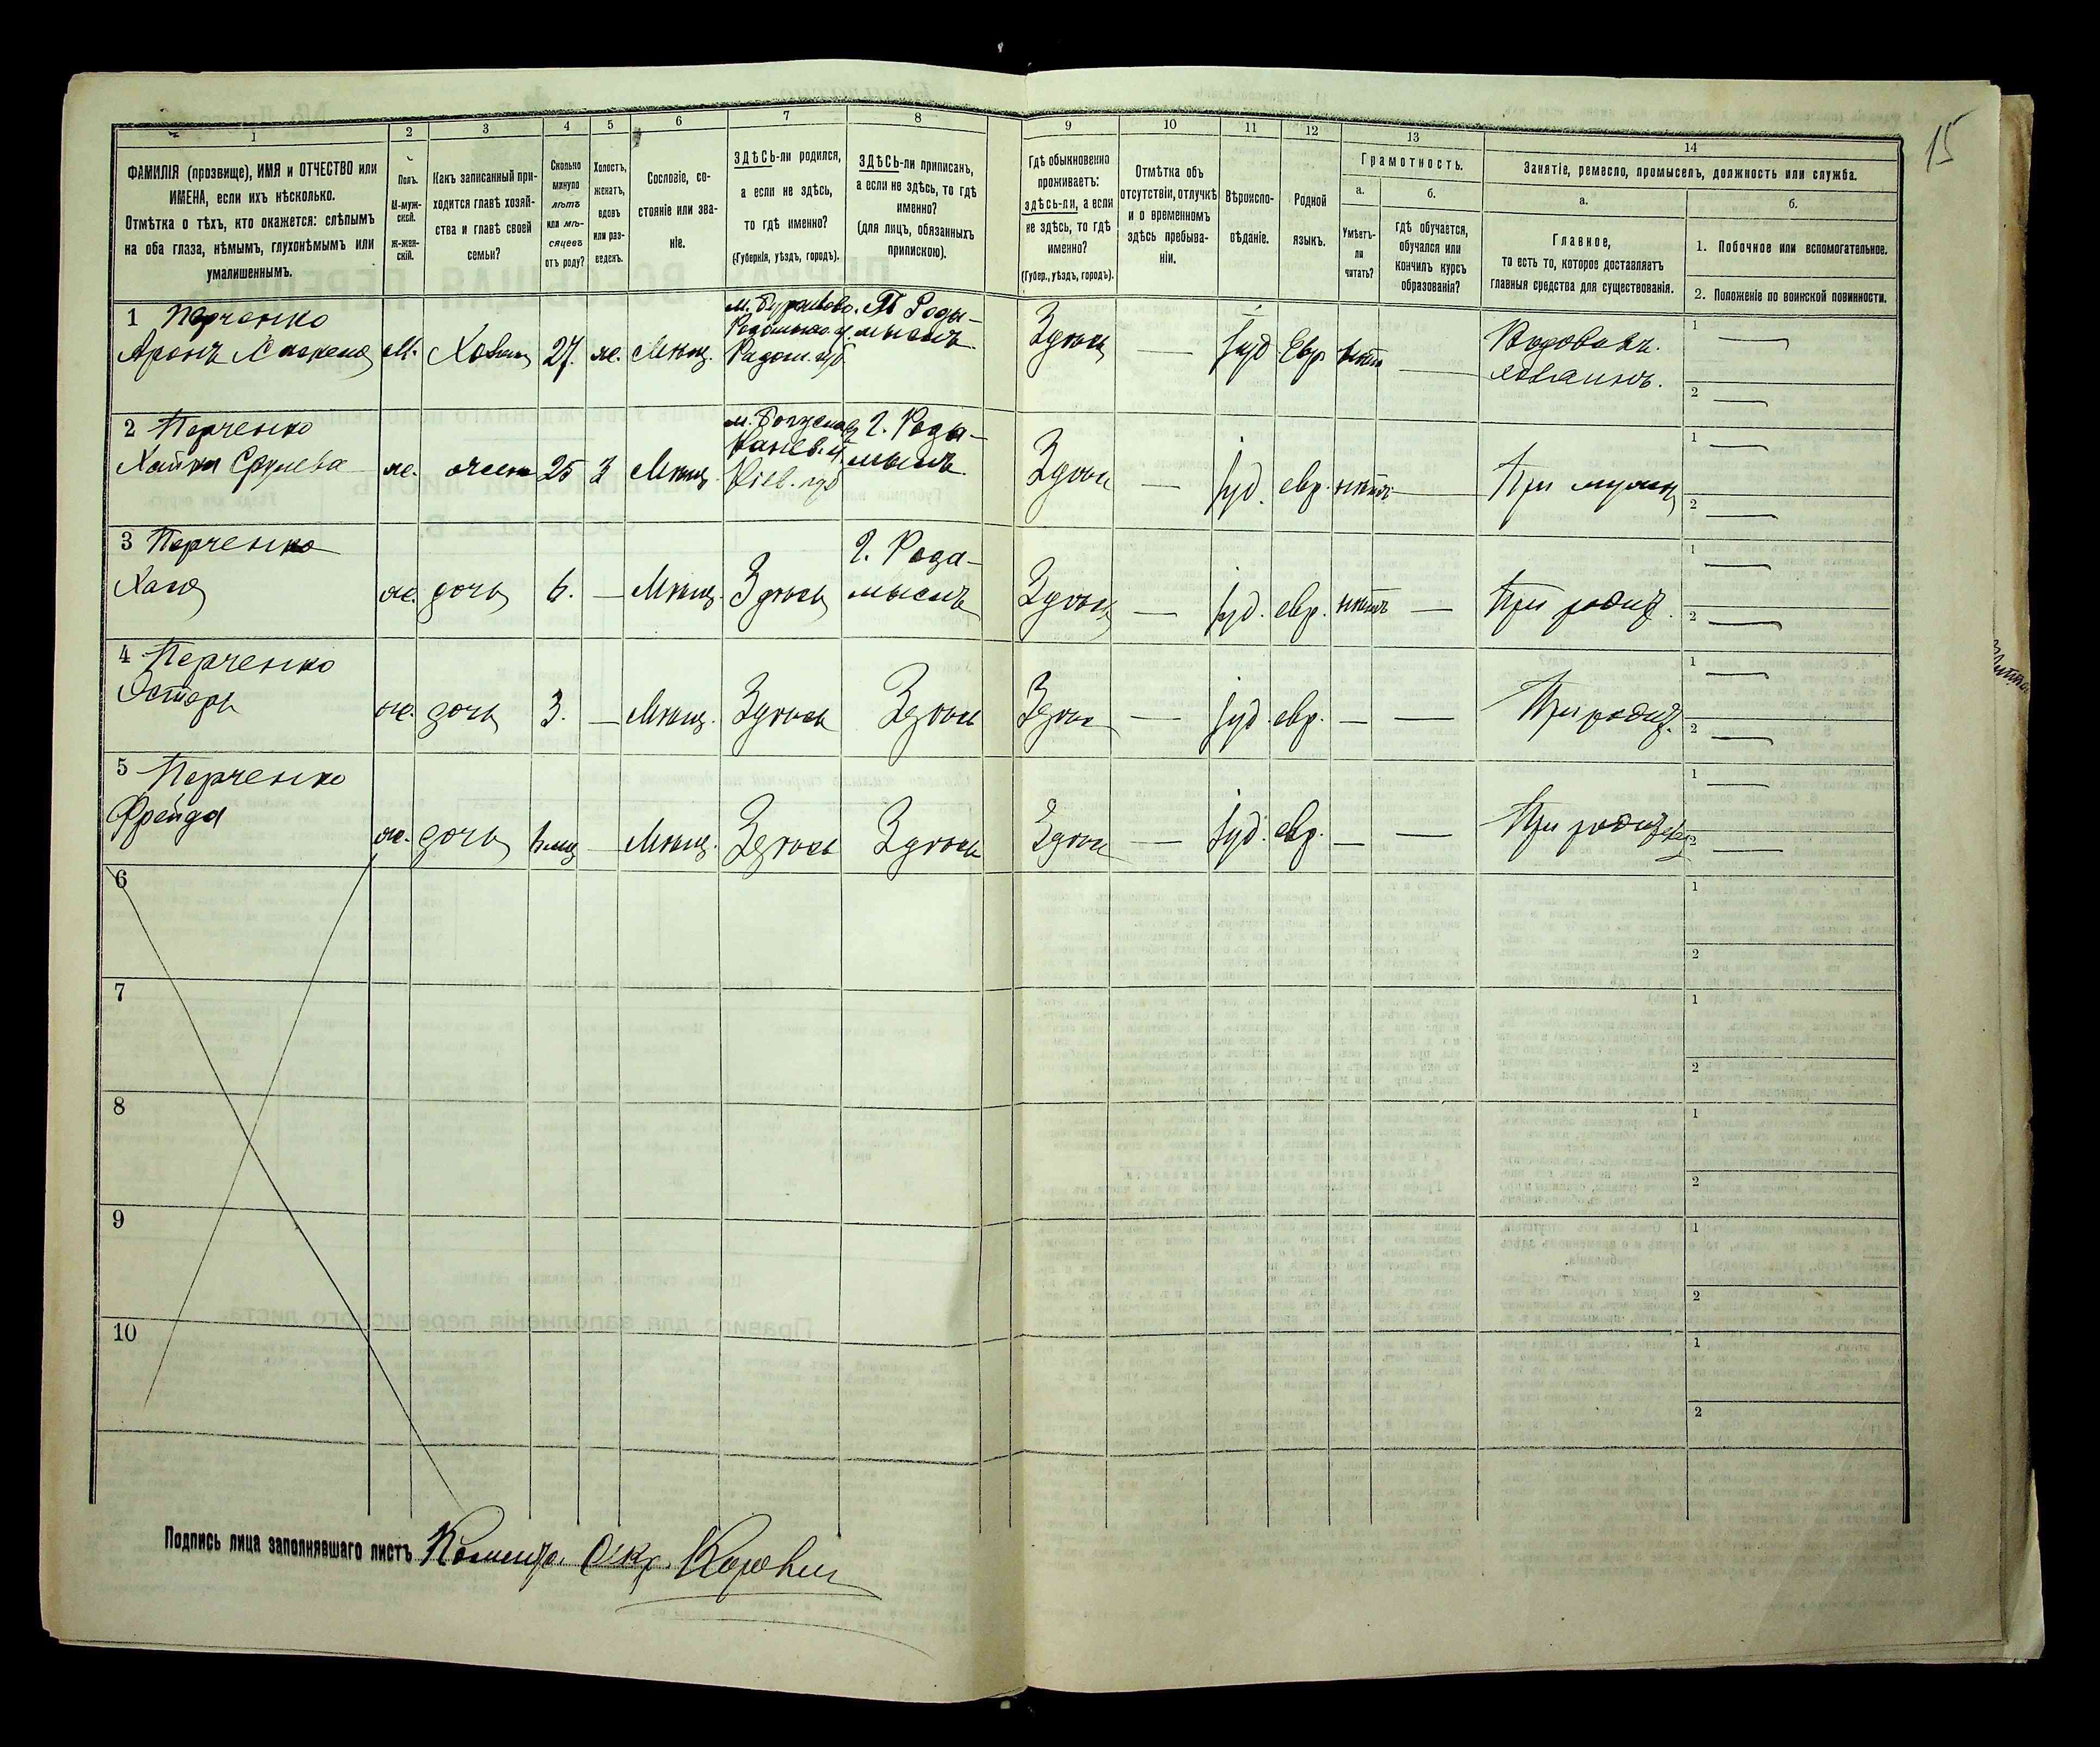 15
1 2 3 4 5 6 7 8 9 10 11 12 13 14
ФАМИЛІЯ (прозвище), ИМЯ и ОТЧЕСТВО или
ИМЕНА, если ихъ нѣсколько.
Отмѣтка о тѣхъ, кто окажется: слѣпымъ
на оба глаза, нѣмымъ, глухонѣмымъ или
умалишеннымъ.
Полъ.
М-муж-
ской.
Ж-жен-
скій.
Какъ записанный при-
ходится главѣ хозяй-
ства и главѣ своей
семьи?
Сколько
минуло
лѣтъ
или мѣ-
сяцевъ
отъ роду?
Холостъ,
женатъ,
вдовъ
или раз-
веденъ.
Сословіе, со-
стояніе или зва-
ніе.
ЗДѢСЬ-ли родился,
а если не здѣсь,
то гдѣ именно?
(Губернія, уѣздъ, городъ).
ЗДѢСЬ-ли приписанъ,
а если не здѣсь, то гдѣ
именно?
(для лицъ, обязанныхъ
припискою).
Гдѣ обыкновенно
проживаетъ:
здѣсь-ли, а если
не здѣсь, то гдѣ
именно?
(Губер., уѣздъ, городъ).
Отмѣтка объ
отсутствіи, отлучкѣ
и о временномъ
здѣсь пребыва-
ніи.
Вѣроиспо-
вѣданіе.
Родной
языкъ.
Грамотность.
а.
Умѣетъ-
ли
читать?
б.
Гдѣ обучается,
обучался или
кончилъ курсъ
образованія?
Занятіе, ремесло, промыселъ, должность или служба.
а.
Главное,
то есть то, которое доставляетъ
главныя средства для существованія.
б.
1. Побочное или вспомогательное.
2. Положеніе по воинской повинности.
1 Перченко
Аронъ
М. 27. ж. Мѣщ.
Радом. губ.
Здѣсь — Іуд Евр нѣтъ —
хозяинъ.
1 —
2 —
2 Перченко
Хайка
ж. жена 25 З Мѣщ.
Канев. у.
Кіев. губ
г. Рады-
мысль
Здѣсь — Іуд. евр. нѣтъ — При мужѣ
1 —
2 —
3 Перченко
Хася
ж. дочь 6. — Мѣщ. Здѣсь
г. Рада-
мысль
Здѣсь — Іуд. евр. нѣтъ — При родит.
1 —
2 —
4 Перченко
Эстеръ
ж. дочь 3. — Мѣщ. Здѣсь Здѣсь Здѣсь — Іуд. евр. — — При родит.
1 —
2 —
5 Перченко
Фрейда
ж. дочь — Мѣщ. Здѣсь Здѣсь Здѣсь — Іуд. евр. — — При родит
1 —
2 —
6
1
2
7
1
2
8
1
2
9
1
2
10
1
2
Подпись лица заполнявшаго листъ